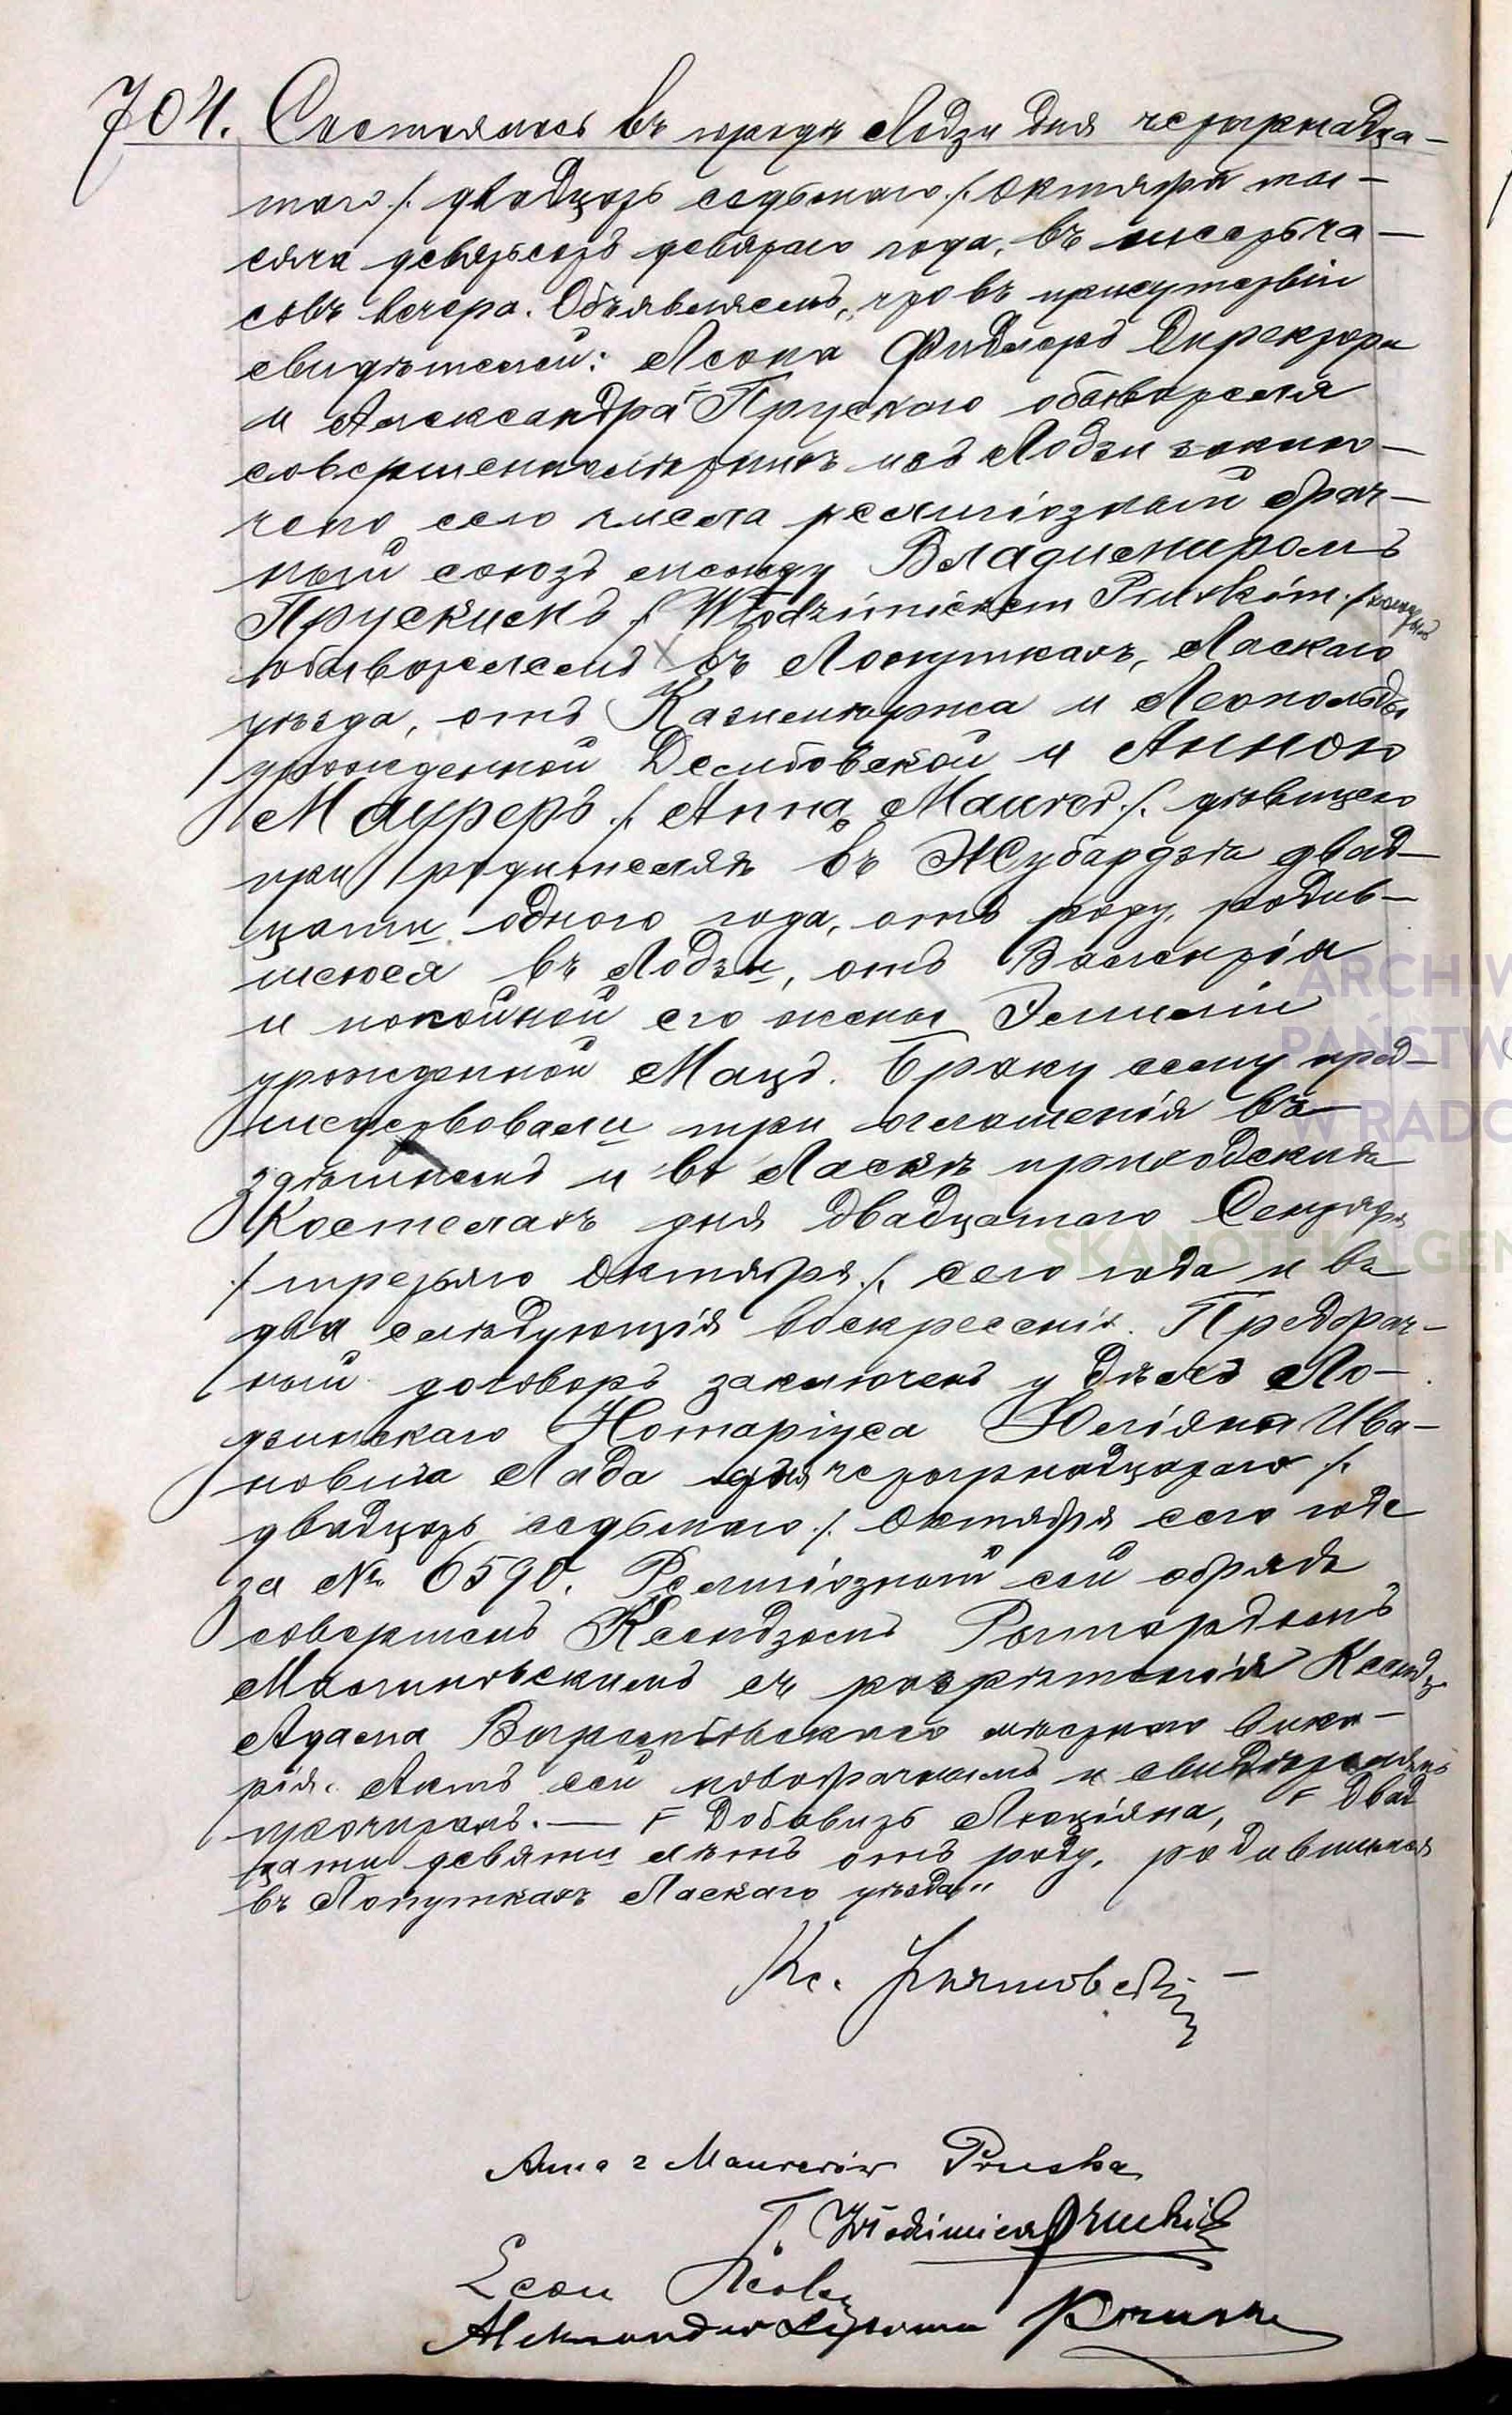 704. Состоялось въ городѣ Лодзи дня четырнадца-
таго /. двадцать седьмаго ./. Октября ты-
сяча девятьсотъ девятаго года, въ шесть ча-
совъ вечера. Объявляемъ, что въ присутствіи
свидѣтелей: Леона Фидлеръ Директора
и Александра F Прускаго обывателя
совершеннолѣтнихъ изъ Лодзи заклю-
чено сего числа религіозный брач-
ный союзъ между Владиміромъ
Прускимъ /. Włodzimierzem Pruskim ./.
обывателемъ въ Лопаткахъ, Ласкаго
уѣзда, отъ Казимиржа и Леопольды
урожденной и Анною
Мауреръ ./. Anna Maurer ./. дѣвицею
при родителяхъ въ Жубардзѣ двад-
цати одного года, отъ роду, родив-
шеюся въ Лодзи, отъ Валентія
и покойной его жены Эмиліи
урожденной Мацъ. Браку сему пред-
шествовали три оглашенія въ
здѣшнемъ и въ Ласкѣ приходскихъ
Костелахъ дня двадцатаго Сентября
./ третьяго Октября ./. сего года и въ
два слѣдующія воскресенія. Предбрач-
ный договоръ заключенъ у дѣлъ Ло-
дзинскаго Нотаріуса Юліяна Ива-
новича Лада дня четырнадцатаго ./.
двадцать седьмаго ./. Октября сего года
за № 6590. Религіозный сей обрядъ
совершенъ Ксендзомъ
Малиновскимъ съ разрѣшенія Ксендза
Адама мѣстнаго вика-
рія. Актъ сей новобрачнымъ и свидѣтелямъ
прочитанъ. — F Добавить Люціяна, F двад
цати девяти лѣтъ отъ роду, родившимся
въ Лопаткахъ Ласкаго уѣзда"
Кс.
Anna z Maurerów Pruska
Włodzimierz Pruski
Leon
Aleksander Pruski